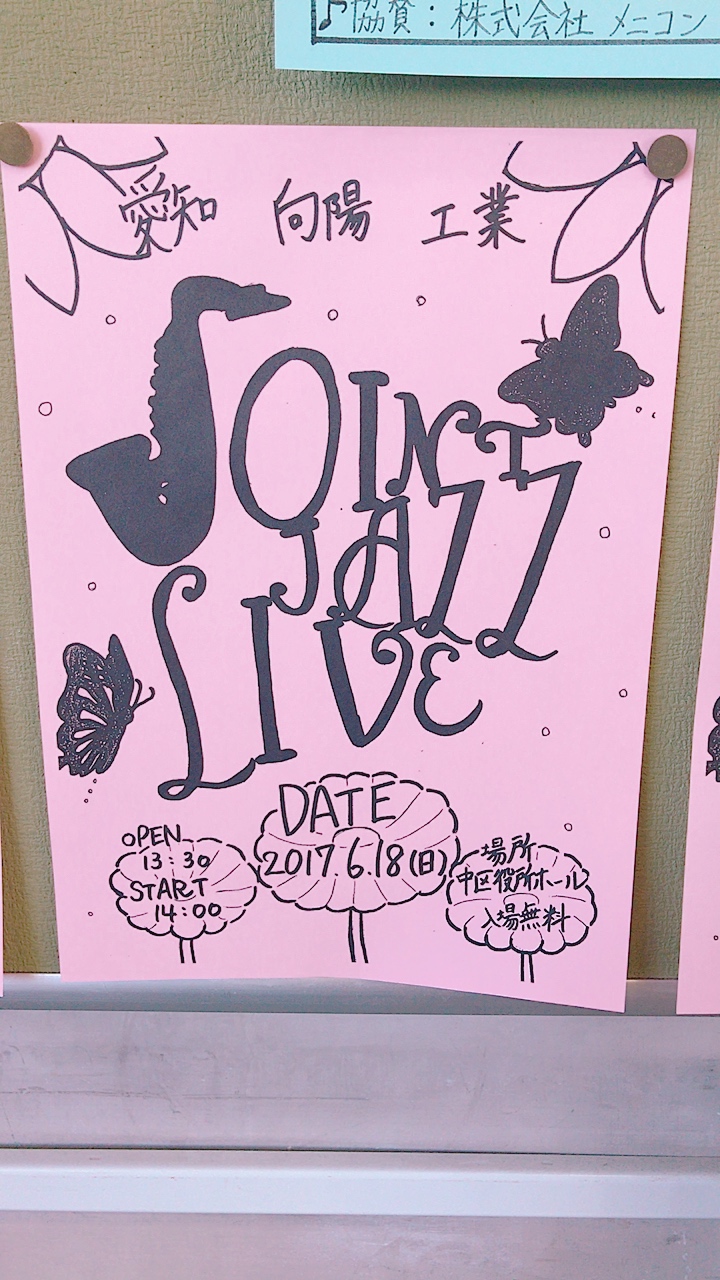 ♪協賛：株式会社 メニコン
愛知 向陽 工業
JOINT
JAZZ
LIVE
DATE
2017.6.18(日)
OPEN
13:30
START
14:00
場所
中区役所ホール
入場無料